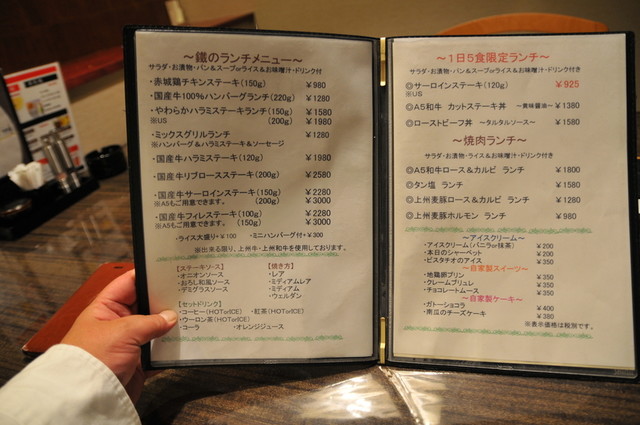 ～鐵のランチメニュー～
サラダ・お漬物・パン＆スープorライス＆お味噌汁・ドリンク付
・赤城鶏チキンステーキ(150g) ￥980
・国産牛100％ハンバーグランチ(220g) ￥1280
・やわらかハラミステーキランチ(150g) ￥1580
※US (200g) ￥1980
・ミックスグリルランチ ￥1280
※ハンバーグ＆ハラミステーキ＆ソーセージ
・国産牛ハラミステーキ(120g) ￥1980
・国産牛リブロースステーキ(200g) ￥2580
・国産牛サーロインステーキ(150g) ￥2280
※A5もご用意できます。 (200g) ￥3000
・国産牛フィレステーキ(100g) ￥2280
※A5もご用意できます。 (150g) ￥3000
・ライス大盛り+￥100 ・ミニハンバーグ付+￥300
※出来る限り、上州牛・上州和牛を使用しております。
【ステーキソース】 【焼き方】
・オニオンソース ・レア
・おろし和風ソース ・ミディアムレア
・デミグラスソース ・ミディアム
・ウェルダン
【セットドリンク】
・コーヒー(HOTorICE) ・紅茶(HOTorICE)
・ウーロン茶(HOTorICE)
・コーラ ・オレンジジュース
～1日5食限定ランチ～
サラダ・お漬物・パン＆スープorライス＆お味噌汁・ドリンク付き
◎サーロインステーキ(120g) ￥925
※US
◎A5和牛 カットステーキ丼 ～黄味醤油～ ￥1380
◎ローストビーフ丼 ～タルタルソース～ ￥1580
～焼肉ランチ～
サラダ・お漬物・ライス＆お味噌汁・ドリンク付き
◎A5和牛ロース＆カルビ ランチ ￥1800
◎タン塩 ランチ ￥1580
◎上州麦豚ロース＆カルビ ランチ ￥1280
◎上州麦豚ホルモン ランチ ￥980
～アイスクリーム～
・アイスクリーム(バニラor抹茶) ￥200
・本日のシャーベット ￥200
・ピスタチオのアイス ￥350
～自家製スイーツ～
・地鶏卵プリン ￥350
・クレームブリュレ ￥350
・チョコレートムース ￥350
～自家製ケーキ～
・ガトーショコラ ￥400
・南瓜のチーズケーキ ￥380
※表示価格は税別です。